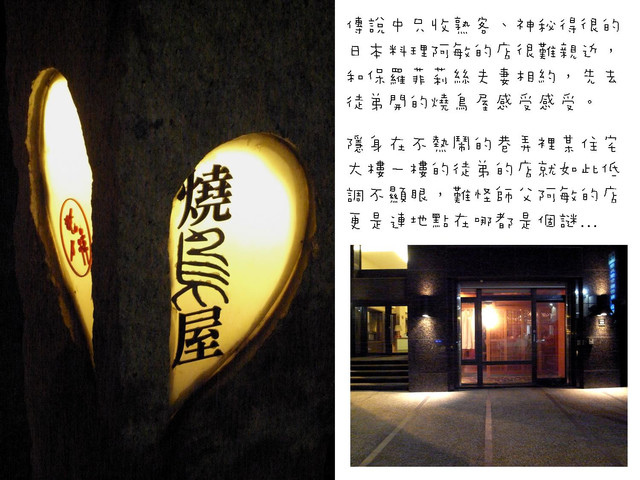 燒鳥屋
傳說中只收熟客、神秘得很的
日本料理阿敏的店很難親近，
和保羅菲莉絲夫妻相約，先去
徒弟開的燒鳥屋感受感受。
隱身在不熱鬧的巷弄裡某住宅
大樓一樓的徒弟的店就如此低
調不顯眼，難怪師父阿敏的店
更是連地點在哪都是個謎...